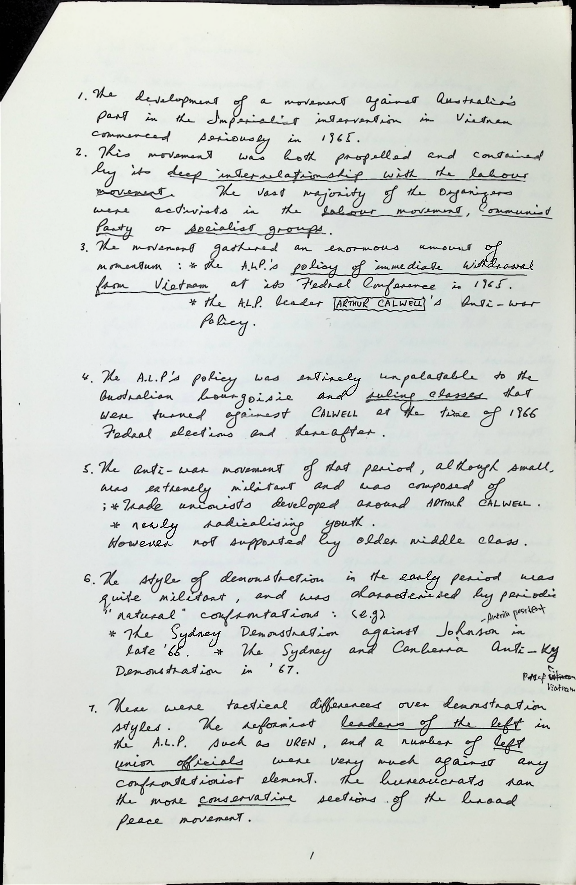 1. The development of a movement against Australia's
part in the Imperialist intervention in Vietnam
commenced seriously in 1965.
2. This movement was both propelled and contained
by its deep interrelationship with the labour
movement. The vast majority of the Organizers
were activists in the labour movement, Communist
Party or socialist groups.
3. The movement gathered an enormous amount of
momentum : * the A.L.P.'s policy of immediate withdrawal
from Vietnam at its Federal Conference in 1965.
* the A.L.P. leader ARTHUR CALWELL's Anti-war
Policy.
4. The A.L.P.'s policy was entirely unpalatable to the
Australian bourgoisie and ruling classes that
were turned againest CALWELL at the time of 1966
Fedral elections and thereafter.
5. The anti-war movement of that period, although small,
was extremely militant and was composed of
: * Trade unionists developed around ARTHUR CALWELL.
* newly radicalising youth.
However not supported by older middle class.
6. The style of demonstration in the early period was
quite militant, and was characterised by periodic
"natural" confrontations : (e.g)
* The Sydney Demonstration against Johnson in
late '66. * The Sydney and Canberra Anti-Ky
Demonstration in '67.
7. There were tactical differences over demonstration
styles. The reformist leaders of the left in
the A.L.P. such as UREN, and a number of left
union officials were very much against any
confrontationist element. The bureaucrats ran
the more conservative sections of the broad
peace movement.
1